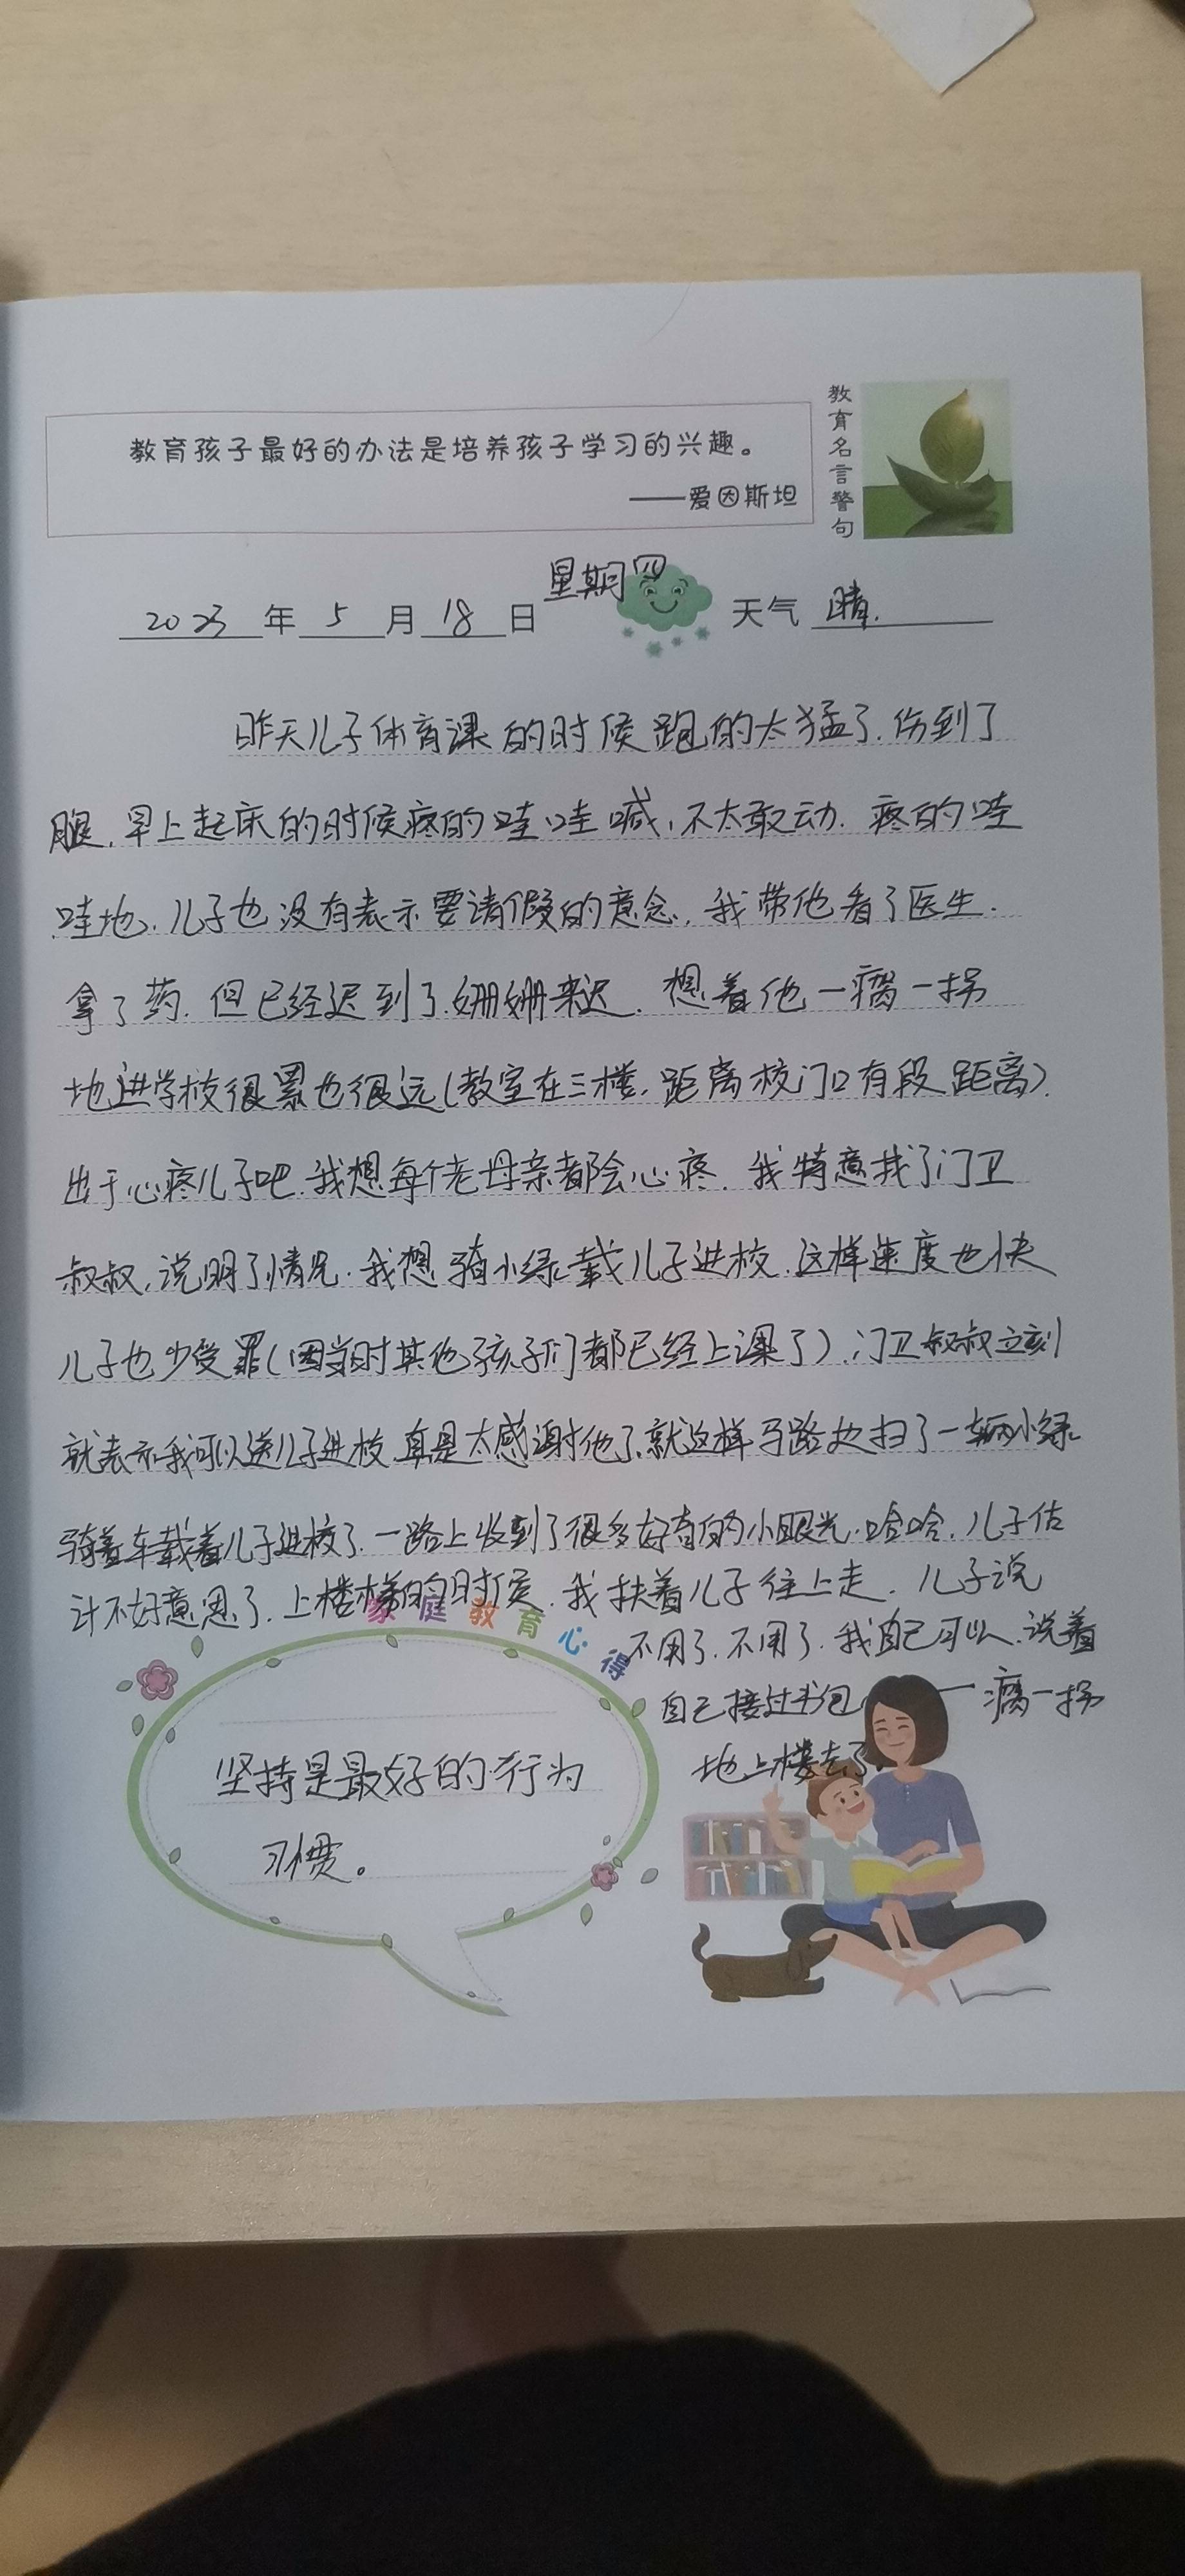 教育孩子最好的办法是培养孩子学习的兴趣。
——爱因斯坦
教育名言警句
星期四
2023年5月18日 天气 晴.
昨天儿子体育课的时候跑的太猛了.伤到了
腿.早上起床的时候疼的哇哇喊,不太敢动.疼的哇
哇地、儿子也没有表示要请假的意念,我带他看了医生.
拿了药.但已经迟到了.姗姗来迟.想着他一瘸一拐
地进学校很累也很远(教室在三楼,距离校门口有段距离).
出于心疼儿子吧.我想每个老母亲都会心疼.我特意找了门卫
叔叔,说明了情况.我想骑小绿载儿子进校.这样速度也快
儿子也少受罪(因当时其他孩子们都已经上课了).门卫叔叔立刻
就表示我可以送儿子进校.真是太感谢他了.就这样马路边扫了一辆小绿
骑着车载着儿子进校了.一路上收到了很多好奇的小眼光.哈哈.儿子估
计不好意思了.上楼梯的时候.我扶着儿子往上走.儿子说
不用了.不用了.我自己可以.说着
自己接过书包 一瘸一拐
地上楼去了
家庭教育心得
坚持是最好的行为
习惯。